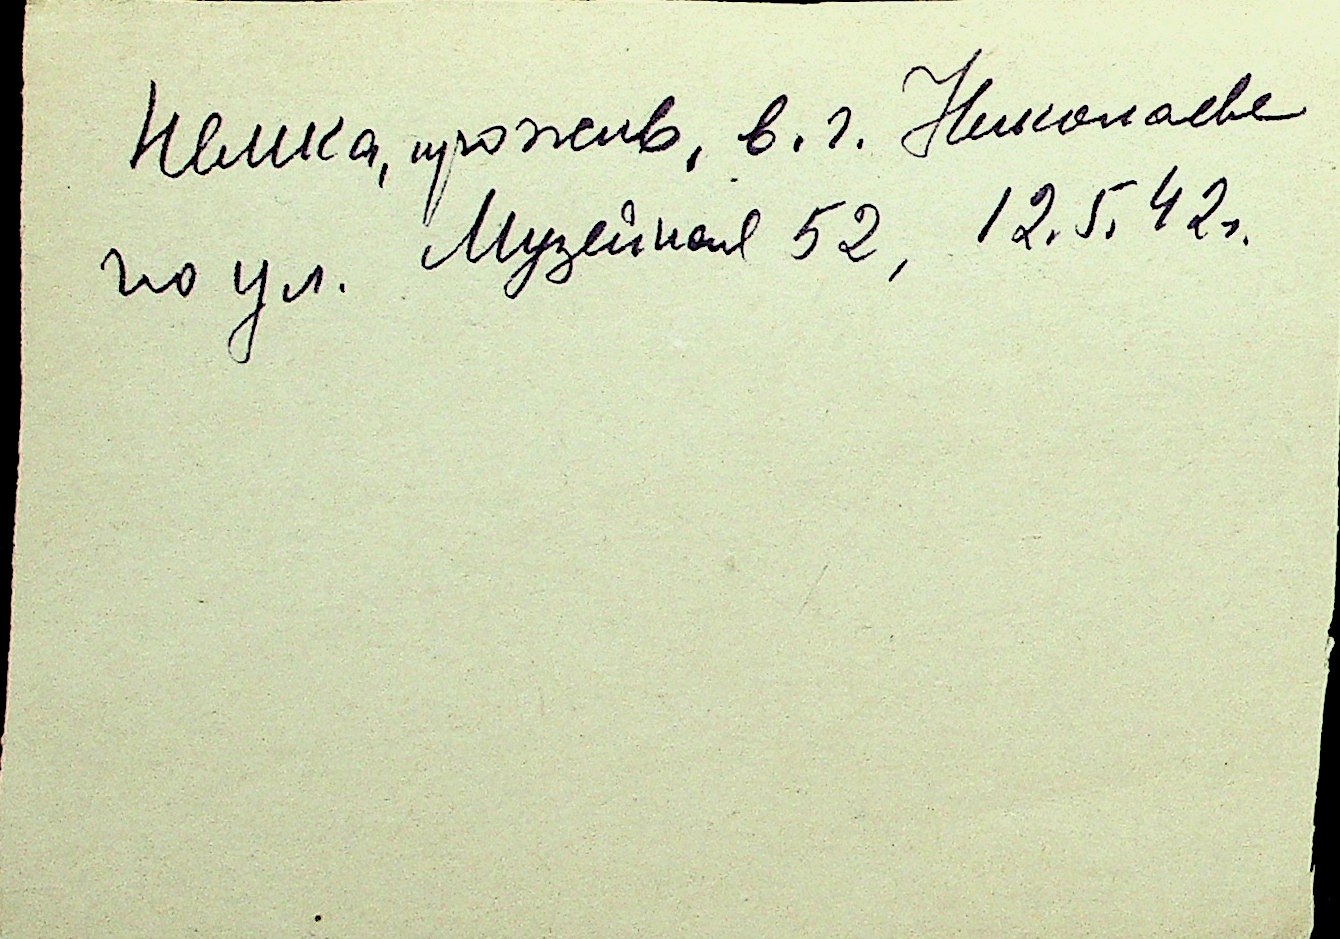 Немка, прожив, в. г. Николаеве
по ул. Музейная 52, 12.5.42г.